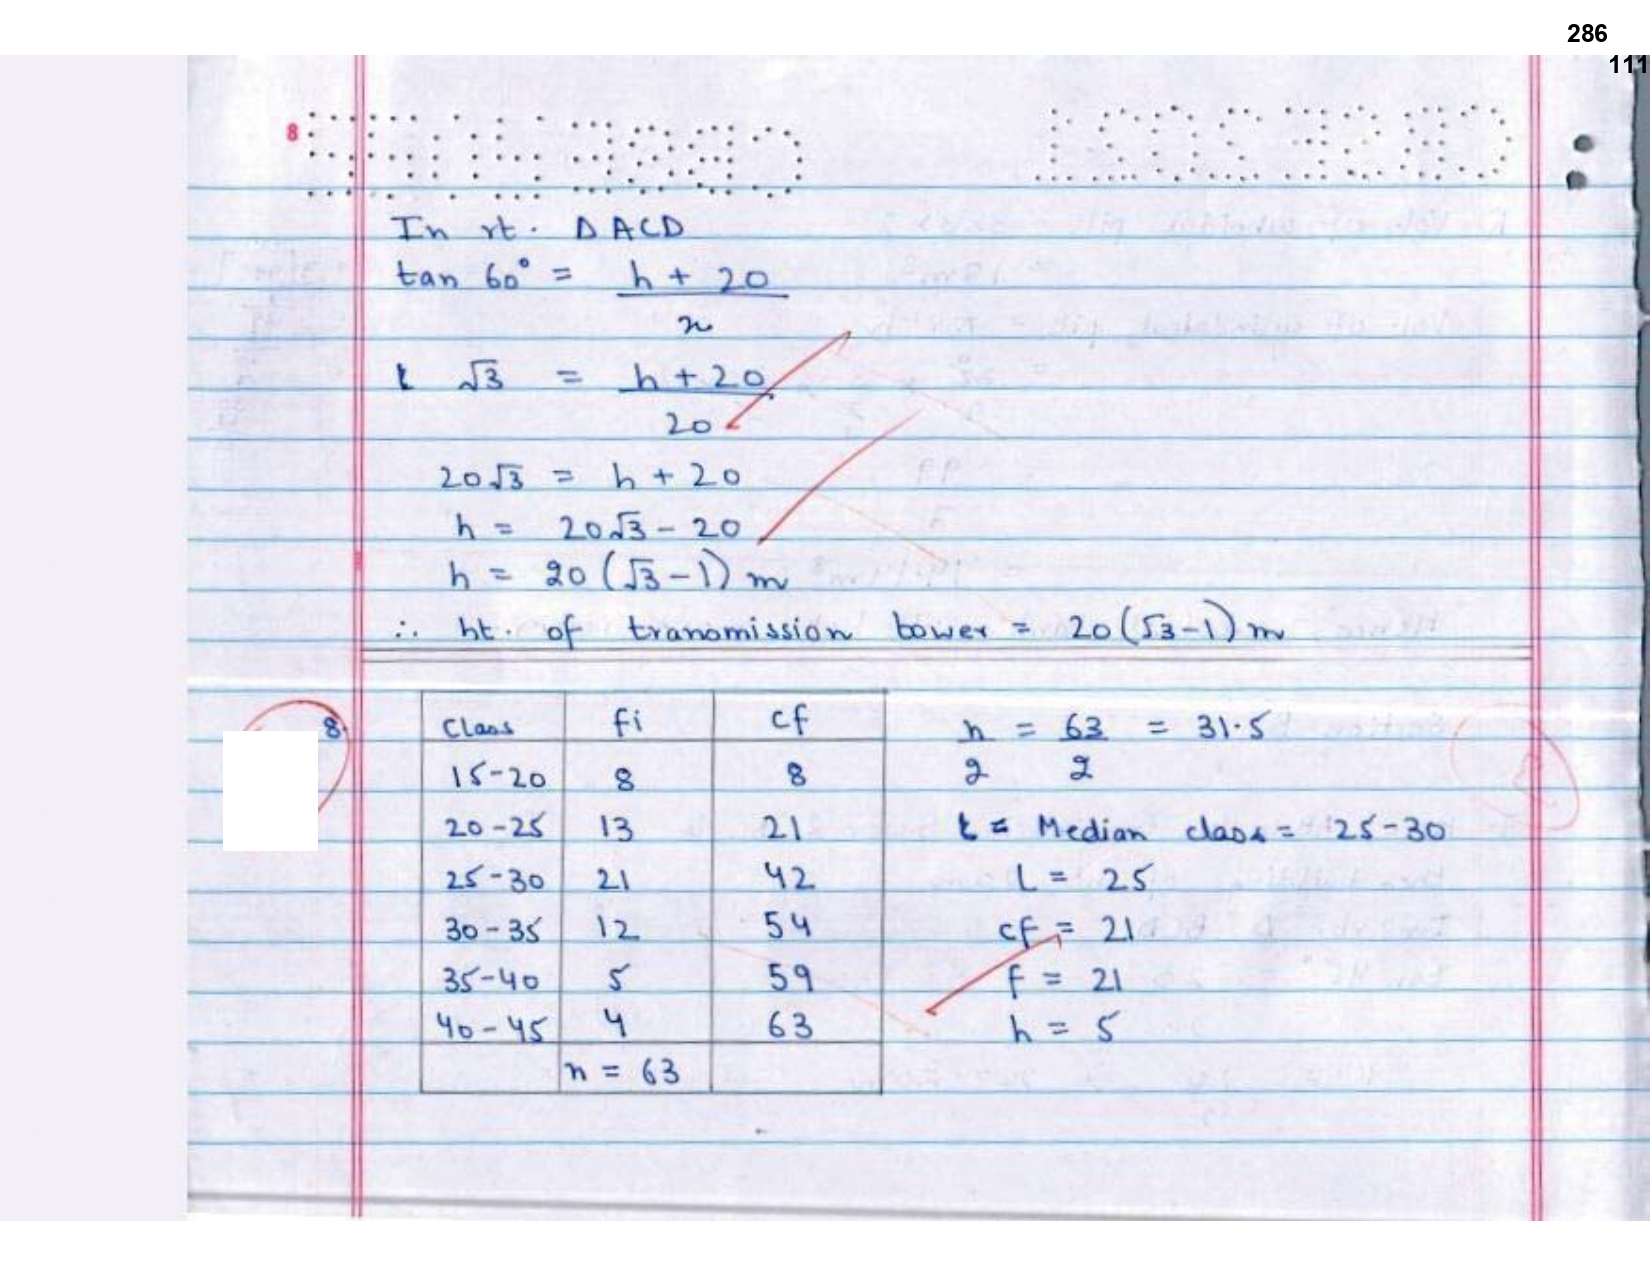 286
111
8
In rt. Δ ACD
tan 60° = h + 20 / x
√3 = h + 20 / 20
20√3 = h + 20
h = 20√3 - 20
h = 20 (√3 - 1) m
∴ ht. of transmission tower = 20 (√3 - 1) m
8.
Class fi cf
15-20 8 8
20-25 13 21
25-30 21 42
30-35 12 54
35-40 5 59
40-45 4 63
n = 63
n/2 = 63/2 = 31.5
Median class = 25-30
l = 25
cf = 21
f = 21
h = 5